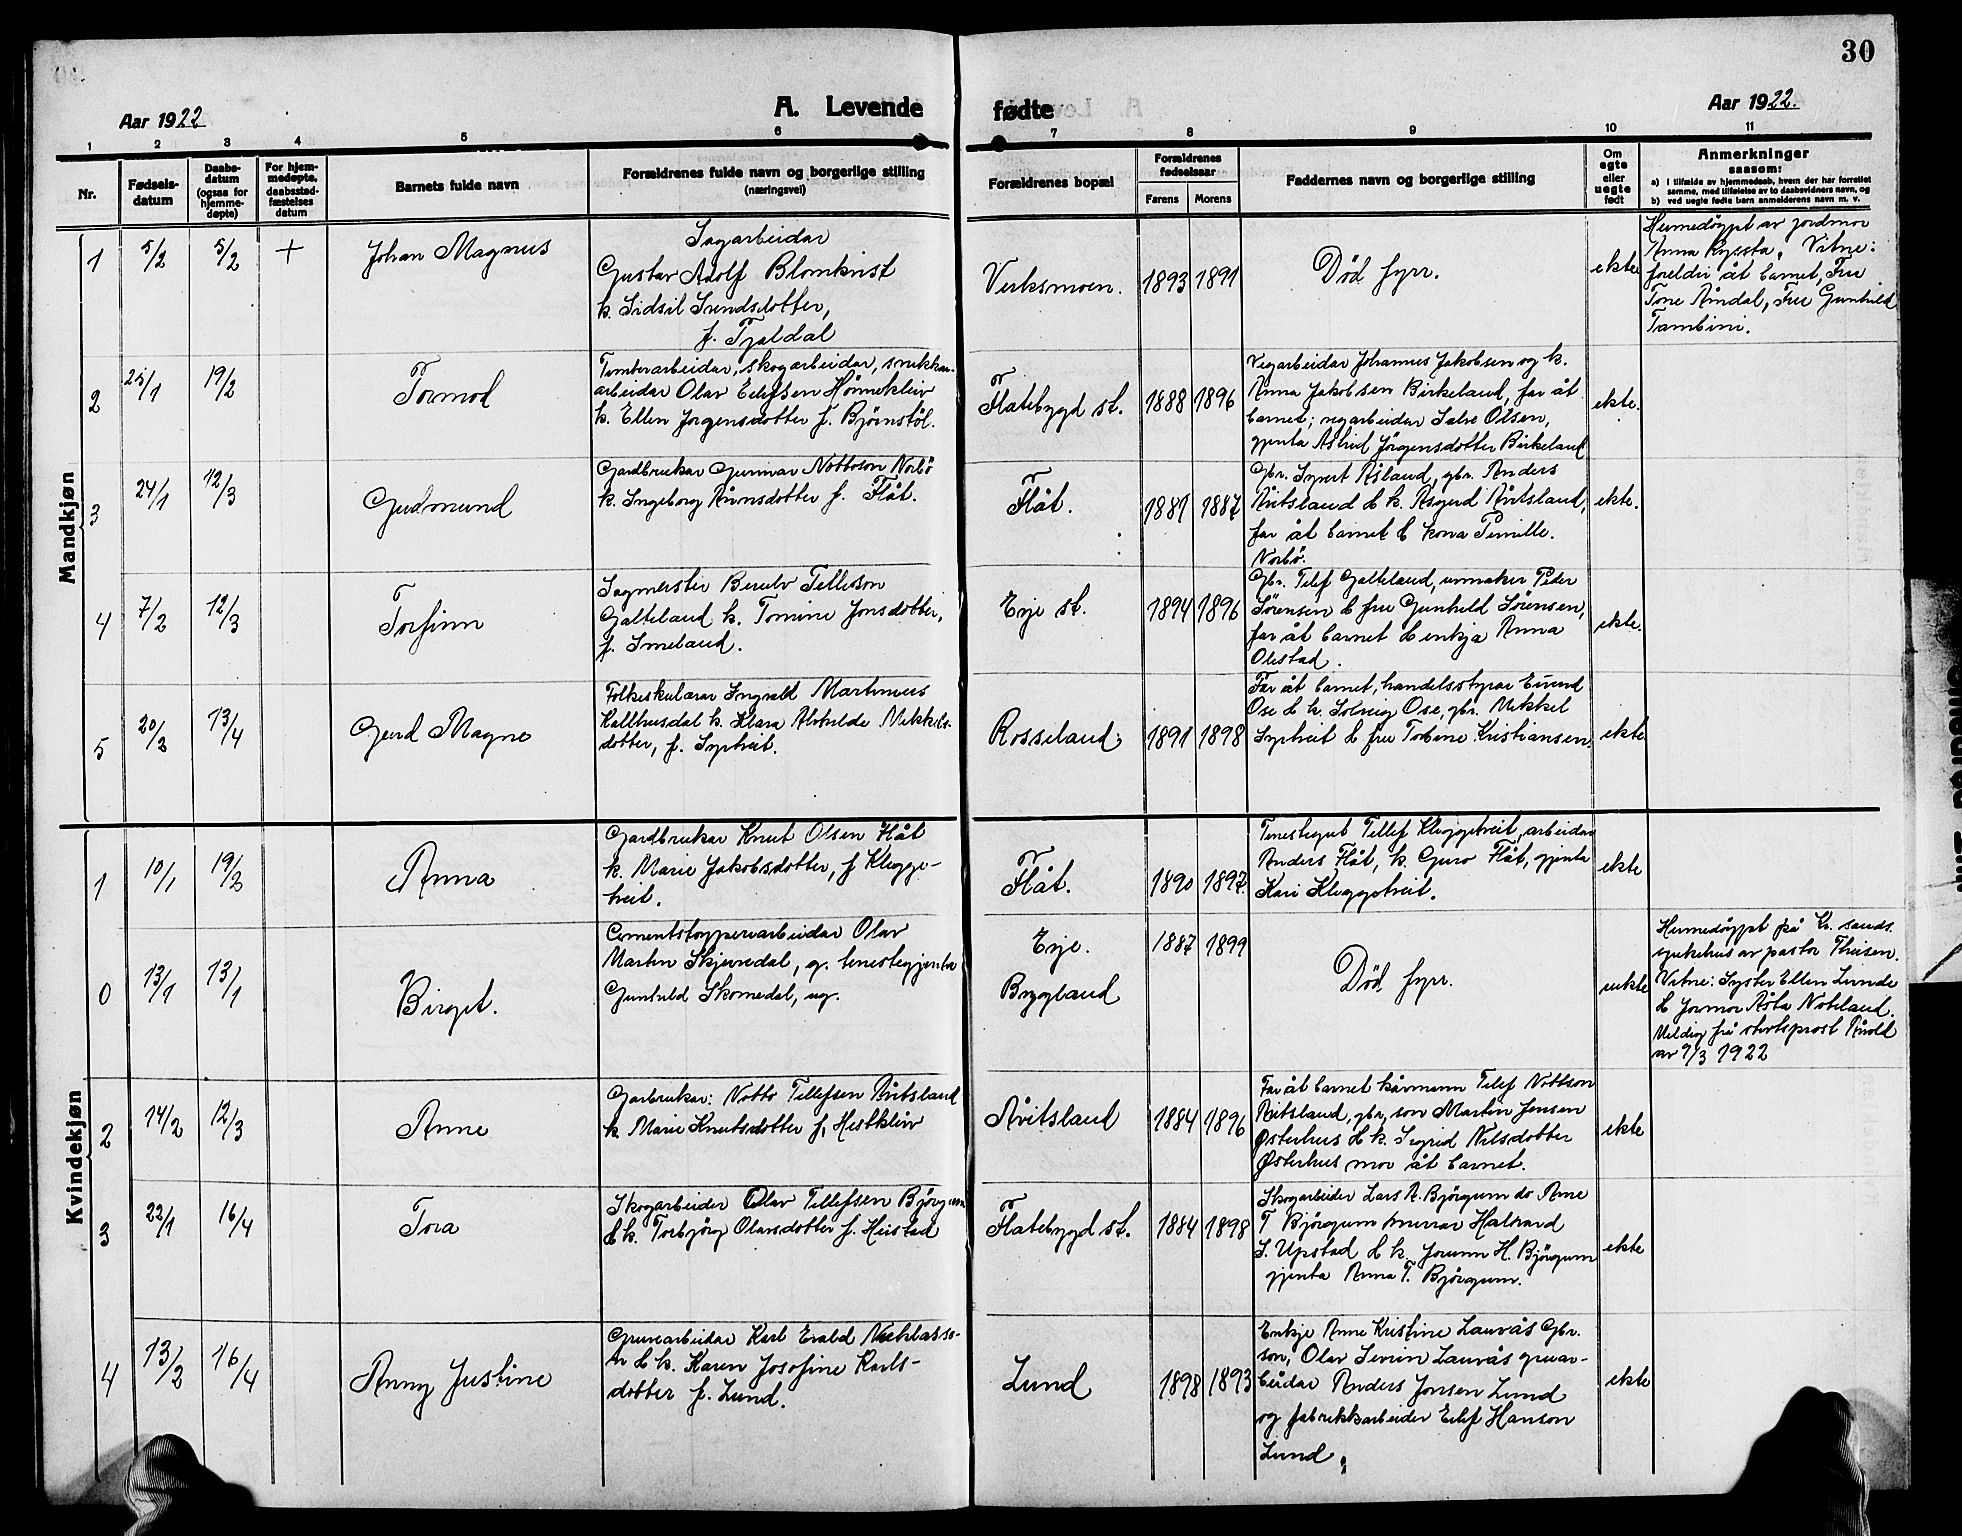 30
Aar 1922
A. Levende
fødte
Aar 1922.
1 2 3 4 5 6 7 8 9 10 11
Nr.
Fødsels-
datum
Daabs-
datum
(ogsaa for
hjemme-
døpte)
For hjem-
medøpte,
daabsstad-
fæstelses
datum
Barnets fulde navn
Forældrenes fulde navn og borgerlige stilling
(næringsvei)
Forældrenes bopæl
Forældrenes
fødselsaar
Farens
Morens
Faddernes navn og borgerlige stilling
Om
egte
eller
uegte
født
Anmerkninger
saasom:
a) i tilfælde av hjemmedaab, hvem der har forrettet
samme, med tilføielse av to daabsvidners navn, og
b) ved uegte fødte barn anmelderens navn m. v.
Mandkjøn
1
5/2
5/2
+
Johan Magnus
Sagarbeidar
Gustav Adolf Blomkvist
k. Sidsil Svendsdotter,
f. Tjaldal
Verksmoen.
1893
1891
Død fyrr.
ekte
Heimedøypt av jordmor
Anna Ryssta, Vitne:
foreldri åt barnet, Fru
Tone Åmdal, Fru Gunhild
Tambini.
2
25/1
19/2
Tormod
Tomterarbeidar, skogarbeidar, snikkar-
arbeidar Olav Eilefsen Hønnekleiv
k. Ellen Jørgensdotter f. Bjørnstøl.
Flatebygd st.
1888
1896
Vegarbeidar Johannes Jakobsen og k.
Anna Jakobsen Birkeland, far åt
barnet; vegarbeidar Salve Olsen,
gjenta Astrid Jörgensdotter Birkeland
ekte.
3
24/1
12/3
Gudmund
Gardbrukar Gunnar Nottoson Norbø
k. Ingeborg Ånonsdotter f. Flåt.
Flåt.
1881
1887
Gbr. Syvert Åsland, gbr. Anders
Åvitsland & k. Asgerd Åvitsland,
far åt barnet & kona Pernille.
Norbø.
ekte.
4
7/2
12/3
Torfinn
Sagmeister Berulv Tellefson
Galteland k. Tomine Jonsdotter,
f. Imeland.
Evje st.
1894
1896
Gbr. Tellef Galteland, urmaker Peder
Sørensen & fru Gunhild Sørensen,
far åt barnet & enkja Anna
Olestad.
ekte.
5
20/2
13/4
Gerd Magne
Folkeskulærar Ingvald Martinius
Kallhusdal k. Klara Alvhilde Mikkels-
dotter, f. Syrtveit.
Rosseland.
1891
1898
Far åt barnet, handelsstyrar Eivind
Ose & k. Solveig Ose, gbr. Mikkel
Syrtveit & fru Tobine Kristiansen.
ekte
Kvindekjøn
1
10/1
19/2
Anna
Gardbrukar Knut Olsen Flåt
k. Marie Jakobsdotter, f Klegge-
tveit.
Flåt.
1890
1897
Tenestegut Tellef Kleggetveit, arbeidar
Anders Flåt, k. Guro Flåt, gjenta
Kari Kleggetveit.
ekte
0
13/1
13/1
Birgit.
Cementstøyperiarbeidar Olav
Martin Skjevedal, g. tenestegjenta
Gunhild Skomedal, ug.
Evje.
Bygland
1887
1899
Død fyrr.
uekte
Heimedøypt på Kr. sands
sjukehus av pastor Theisen.
Vitne: Syster Ellen Lunde
& jormor Åsta Noteland.
Melding frå stiftsprost Årvold
av 9/3 1922
2
14/2
12/3
Anne
Garbrukar: Notto Tellefsen Åvitsland
k. Marie Knutsdotter f, Hestkleiv
Åvitsland
1884
1896
Far åt barnet kårmann Tellef Nottson
Åvitsland, gbr, son Martin Jensen
Østerhus & k. Sigrid Nilsdotter
Østerhus mor åt barnet.
ekte
3
22/1
16/4
Tora
Skogarbeider Olav Tellefsen Bjørgum
& k. Torbjørg Olavsdotter f. Heistad
Flatebygd st.
1884
1898
Skogarbeider Lars A. Bjørgum do Arne
T Bjørgum murrar Halvard
S. Upstad & k. Jorunn H. Bjørgum
gjenta Anna T. Bjørgum.
ekte
4
13/2
16/4
Anny Justine
Gruvearbeidar Karl Evald Nicklass-
on & k. Karen Josofine Karls-
dotter f. Lund.
Lund
1898
1893
Enkje Anne Kristine Lauvås Gbr.
son, Olav Severin Lauvås gruvar-
beidar Anders Jonsen Lund
og fabrikkarbeider Eilef Hanson
Lund.
ekte